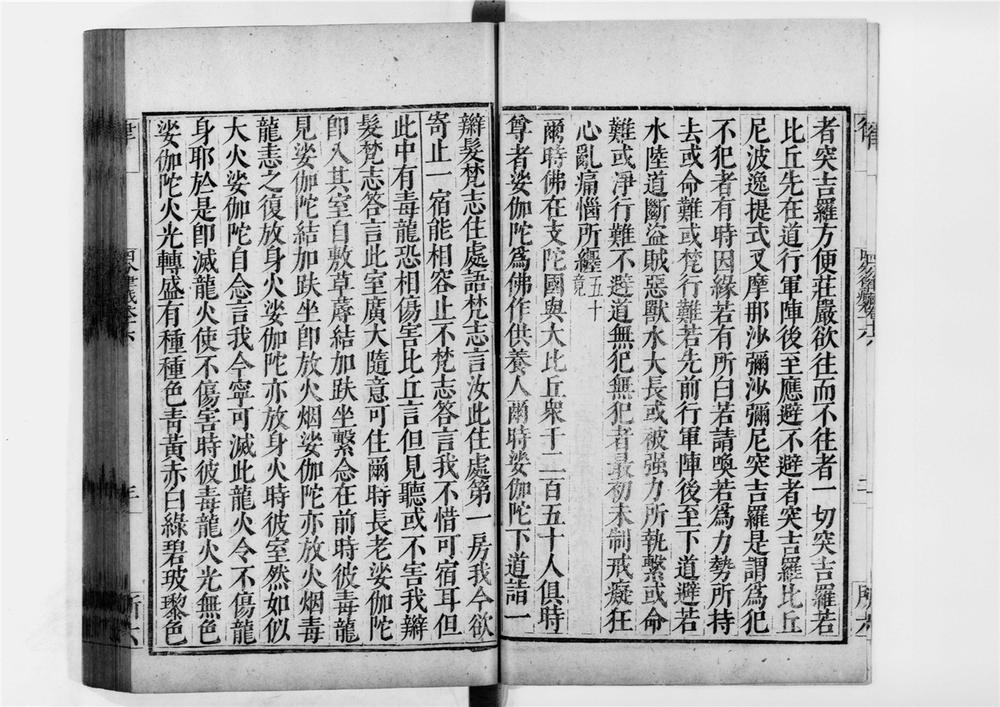 者突吉羅方便莊嚴欲往而不往者一切突吉羅若
比丘先在道行軍陣後至應避不避者突吉羅比丘
尼波逸提式叉摩那沙彌沙彌尼突吉羅是謂爲犯
不犯者有時因緣若有所白若請喚若爲力勢所持
去或命難或梵行難若先前行軍陣後至下道避若
水陸道斷盜賊惡獸水大長或被强力所執繫或命
難或淨行難不避道無犯無犯者最初未制戒癡狂
心亂痛惱所纏五十竟
爾時佛在支陀國與大比丘衆千二百五十人俱時
尊者娑伽陀爲佛作供養人爾時娑伽陀下道詣一
辮髮梵志住處語梵志言汝此住處第一房我今欲
寄止一宿能相容止不梵志答言我不惜可宿耳但
此中有毒龍恐相傷害比丘言但見聽或不害我辮
髮梵志答言此室廣大隨意可住爾時長老娑伽陀
卽入其室自敷草蓐結加趺坐繫念在前時彼毒龍
見娑伽陀結加趺坐卽放火烟娑伽陀亦放火烟毒
龍恚之復放身火娑伽陀亦放身火時彼室然如似
大火娑伽陀自念言我今寧可滅此龍火令不傷龍
身耶於是卽滅龍火使不傷害時彼毒龍火光無色
娑伽陀火光轉盛有種種色靑黃赤白綠碧玻瓈色